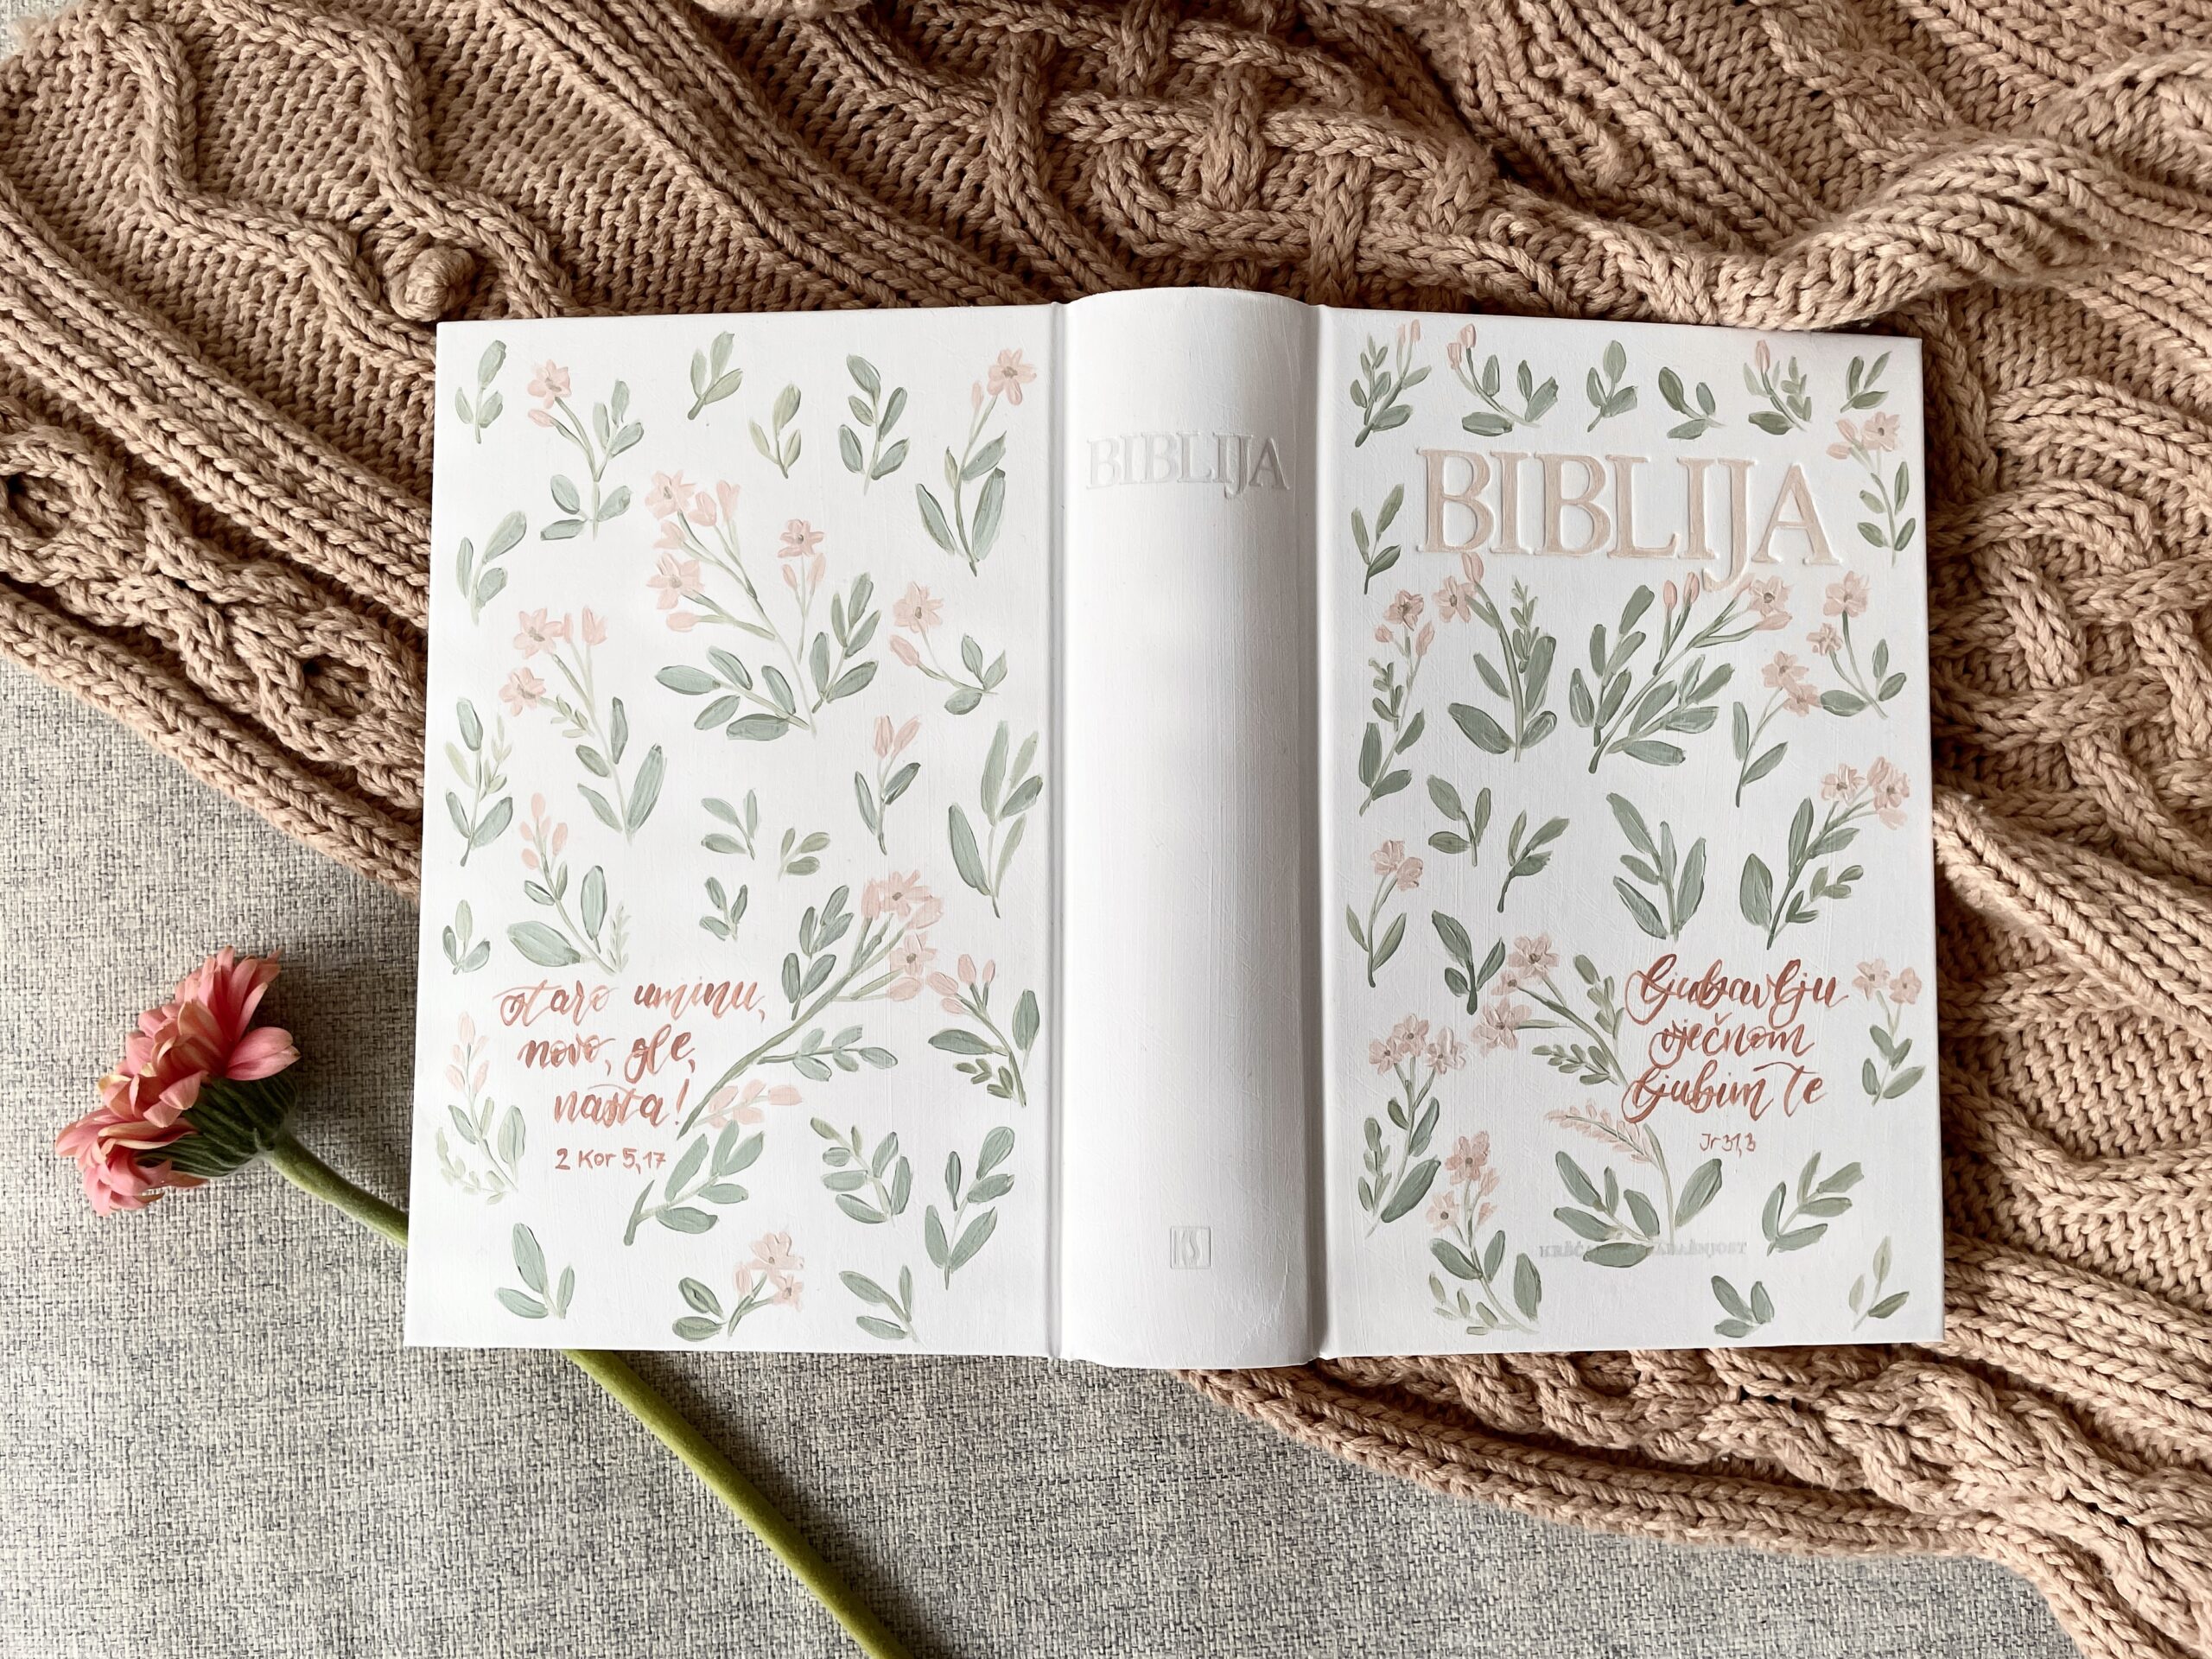 staro uminu,
novo, gle,
nasta!
2 Kor 5,17
BIBLIJA
KS
BIBLIJA
ljubavlju
vječnom
ljubim te
Jr 31,3